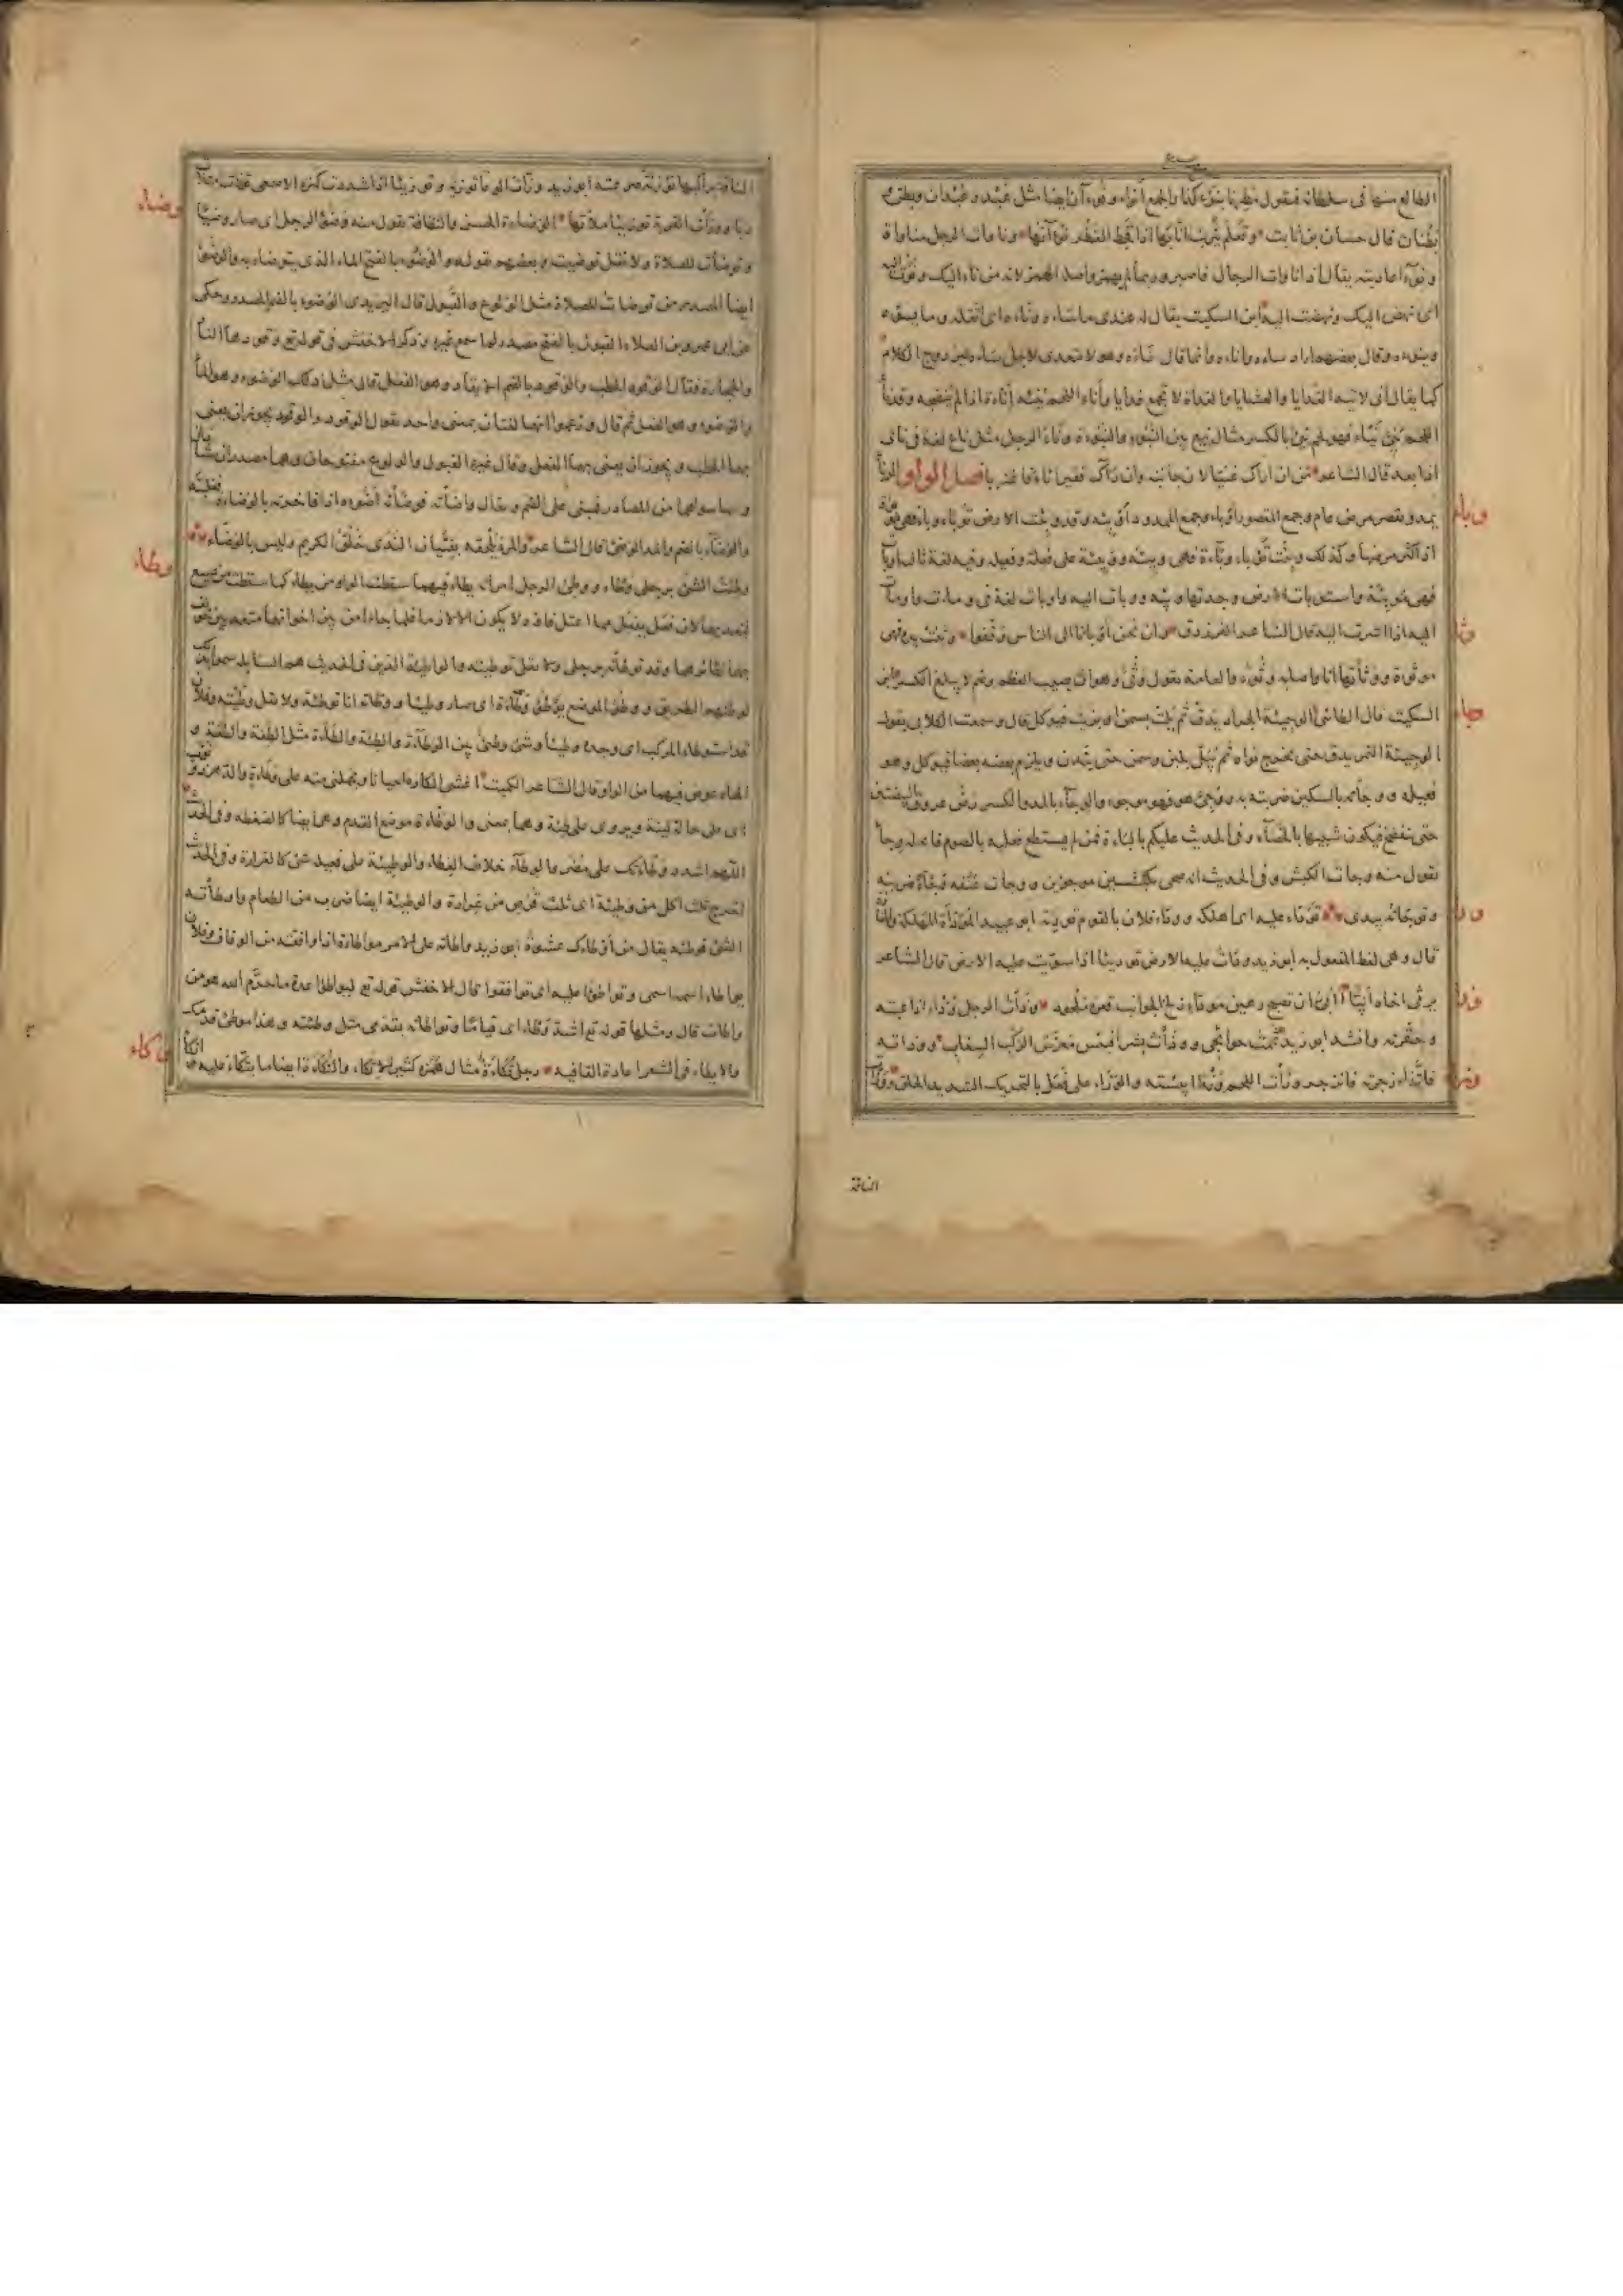 الطالع منها فى سلطانه فتقول مطرنا بنوء كذا والجمع أنواء ونوءان ايضا مثل عبد وعبدان وبطن
وبطنان قال حسان بن ثابت وتعلم يثرب انا بها اذا قحط القطر نوءانها وناوات الرجل مناواة
ونواء اعاديته يقال اذا ناوات الرجال فاصبر وربما لم يهمز واصله الهمز لانه من ناء اليك ونؤت اليه
اى نهض اليك ونهضت اليه ابن السكيت يقال له عندى ما ساءه وناءه اى اثقله وما يسوءه
وينوءه وقال بعضهم اراد ساءه واناءه وانما قال ناءه وهو لا يتعدى لاجل ساءه ليزدوج الكلام
كما يقال انى لاتيه الغدايا والعشايا والغداة لا تجمع غدايا وأناء اللحم ينيئه إناءة اذا لم ينضجه وقد ناء
اللحم ينئ نيئا فهو لحم نئ بالكسر مثال نيع بين النيوء والنيوءة وناء الرجل مثل ناع لغة فى نأى
اذا بعد قال الشاعر من ان راك غنيا لان جانبه وان رآك فقيرا ناء فاغتربا فصل الواو الوبأ
يمد ويقصر مرض عام وجمع المقصور اوباء وجمع الممدود أوبئة وقد وبئت الارض توبأ وبأ فهى موبوءة
اذا كثر مرضها وكذلك وبئت توبأ وباءة فهى وبئة ووبيئة على فعلة وفعيلة وفيه لغة ثالثة اوبأت
فهى موبئة واستوبات الارض وجدتها وبئة ووبات اليه واوبات لغة فى ومات واومات
اليه اذا اشرت اليه قال الشاعر الفرزدق وان نحن اوبانا الى الناس وقفوا وثئت يده فهى
موثوءة ووثأتها انا واصابه وثء والعامة تقول وثى وهو ان يصيب العظم وصم لا يبلغ الكسر ابن
السكيت قال الطائى الوجيئة الجراد يدق ثم يلت بسمن او بزيت فيوكل قال وسمعت الكلابى يقول
الوجيئة التمر يدق حتى يخرج نواه ثم يبل بلبن وسمن حتى يتدن ويلزم بعضه بعضا فيوكل وهو
فعيلة ووجأته بالسكين ضربته به ووجئ هو فهو موجوء والوجاء بالمد والكسر رض عروق البيضتين
حتى تنفضخ فيكون شبيها بالخصاء وفى الحديث عليكم بالباءة فمن لم يستطع فعليه بالصوم فانه له وجاء
تقول منه وجات الكبش وفى الحديث انه ضحى بكبشين موجوءين ووجات عنقه وجأ ضربته
وتوجاته بيدى توداء عليه اى اهلكه ووداء فلان بالقوم توديئة ابو عبيد المودأة المهلكة والمفازة
قال وهى لفظ المفعول به ابو زيد ودأت عليه الارض توديئا اذا سويت عليه الارض قال الشاعر
يرثى اخاه أبيا أأبى ان تصبح رهين مودأ زلخ الجوانب قعره ملحود وذأت الرجل وذأ اذا عبته
وحقرته وانشد ابو زيد ثممت حوائجى ووذأت بشرا فبئس معرس الركب السغاب ووذاته
فاتذاء زجرته فانزجر وزأت اللحم وزأ ايبسته والوزاء على فعل بالتحريك الشديد الخلق ووزات
الناقة
وباء
وثاء
وجاء
وداء
وذاء
وزاء
الناقة براكبها توزئة صرعته ابو زيد وزأت الوعاء توزئة وتوزيئا اذا شددت كنزه الاصمعى
ووزأت القربة توزيئا ملأتها الوضاءة الحسن والنظافة تقول منه وضؤ الرجل اى صار وضيئا
وتوضأت للصلاة ولا تقل توضيت وبعضهم يقوله والوضوء بالفتح الماء الذى يتوضاء به والوضوء
ايضا المصدر من توضات للصلاة مثل الولوع والقبول قال اليزيدى الوضوء بالضم المصدر وحكى
عن ابى عمرو بن العلاء القبول بالفتح مصدر لم اسمع غيره وذكر الاخفش فى قوله تع وقودها النا
والحجارة فقال الوقود الحطب والوقود بالضم الاتقاد وهو الفعل قال ومثل ذلك الوضوء وهو الماء
والوضوء وهو الفعل ثم قال وزعموا انهما لغتان بمعنى واحد تقول الوقود والوقود يجوز ان يعنى
بهما الحطب ويجوز ان يعنى بهما الفعل وقال غيره القبول والولوع مفتوحان وهما مصدران شاذان
وما سواهما من المصادر فمبنى على الضم ويقال واضأته فوضأته أضوءه اذا فاخرته بالوضاءة فغلبته
والوضاء بالضم والمد الوضئ قال الشاعر والمرء يلحقه بفتيان الندى خلق الكريم وليس بالوضاء
وطئت الشئ برجلى وطاء ووطئ الرجل امراته يطاء فيهما سقطت الواو من يطاء كما سقطت من يسع
لتعديهما لان فعل يفعل مما اعتل فاؤه لا يكون الا لازما فلما جاءا من بين اخواتهما متعديين خولف
بهما نظائرهما وقد توطأته برجلى ولا تقل توطيته والواطئة الذين فى الحديث هم السابلة سموا بذلك
لوطئهم الطريق ووطؤ الموضع يوطؤ وطاءة اى صار وطيئا ووطاته انا توطئة ولا تقل وطيته وفلان
قد استوطاء المركب اى وجده وطيئا وشئ وطئ بين الوطاءة والطئة والطأة مثل الطعة والطعة و
الهاء عوض فيهما من الواو قال الشاعر الكميت اغشى المكاره احيانا ويحملنى منه على طأة والدهر ذو نوب
اى على حالة لينة ويروى على طئة وهما بمعنى والوطاءة موضع القدم وهى ايضا كالضغطة وفى الحديث
اللهم اشدد وطاتك على مضر والوطاء خلاف الغطاء والوطيئة على فعيلة شئ كالغرارة وفى الحديث
اخرج ثلث اكل من وطيئة اى ثلث قرص من غرارة والوطيئة ايضا ضرب من الطعام واوطأته
الشئ فوطئه يقال من أوطاك عشوة ابو زيد واطاته على الامر مواطاة اذا وافقته من الوفاق وفلان
يواطئ اسمه اسمى وتواطؤا عليه اى توافقوا قال الاخفش قوله تع ليواطؤا عدة ما حرم الله هو من
واطات قال ومثلها قوله تع اشد وطاء اى قياما وتواطاته بقدمى مثل وطئته وهذا موطئ قدمك
والايطاء فى الشعر اعادة القافية رجل تكاءة مثال همزة كثير الاتكاء والتكأة ايضا ما يتكاء عليه
وضاء
وطاء
وكاء